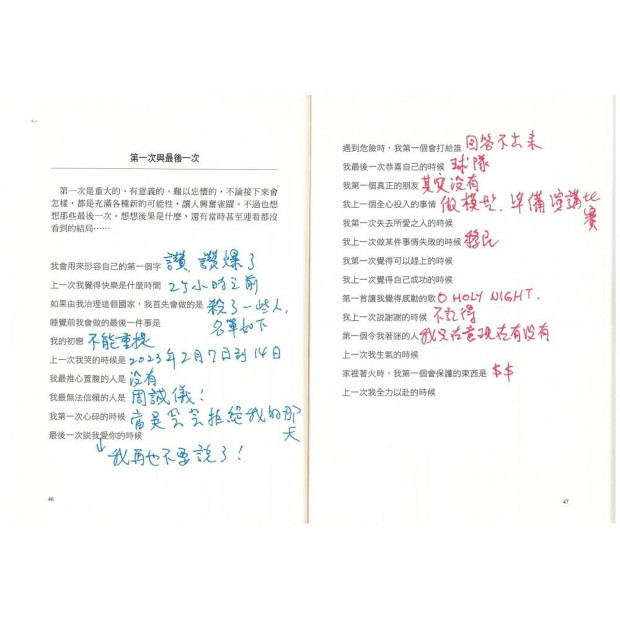 第一次與最後一次
第一次是重大的、有意義的、難以忘懷的，不論接下來會
怎樣，都是充滿各種新的可能性，讓人興奮雀躍。不過也想
想那些最後一次。想想後果是什麼，還有當時甚至連看都沒
看到的結局……
我會用來形容自己的第一個字 讚，讚爆了
上一次我覺得快樂是什麼時間 25小時之前
如果由我治理這個國家，我首先會做的是 殺了一些人，
名單如下
睡覺前我會做的最後一件事是
我的初戀 不能重提
上一次我哭的時候是 2023年2月7日到14日
我最推心置腹的人是 沒有
我最無法信賴的人是 周誠儀！
我第一次心碎的時候 當是 拒絕我的那
天
最後一次說我愛你的時候
↓我再也不要說了！
46
遇到危險時，我第一個會打給誰 回答不出來
我最後一次恭喜自己的時候 球隊
我第一個真正的朋友 其實沒有
我上一個全心投入的事情 做模型，準備演講比
賽
我第一次失去所愛之人的時候
我上一次做某件事情失敗的時候 移民
我第一次覺得可以趕上的時候
我上一次覺得自己成功的時候
第一首讓我覺得感動的歌 O HOLY NIGHT.
我上一次說謝謝的時候 不記得
第一個令我著迷的人 我又在意現在有沒有
上一次我生氣的時候
家裡著火時，我第一個會保護的東西是 $$
上一次我全力以赴的時候
47